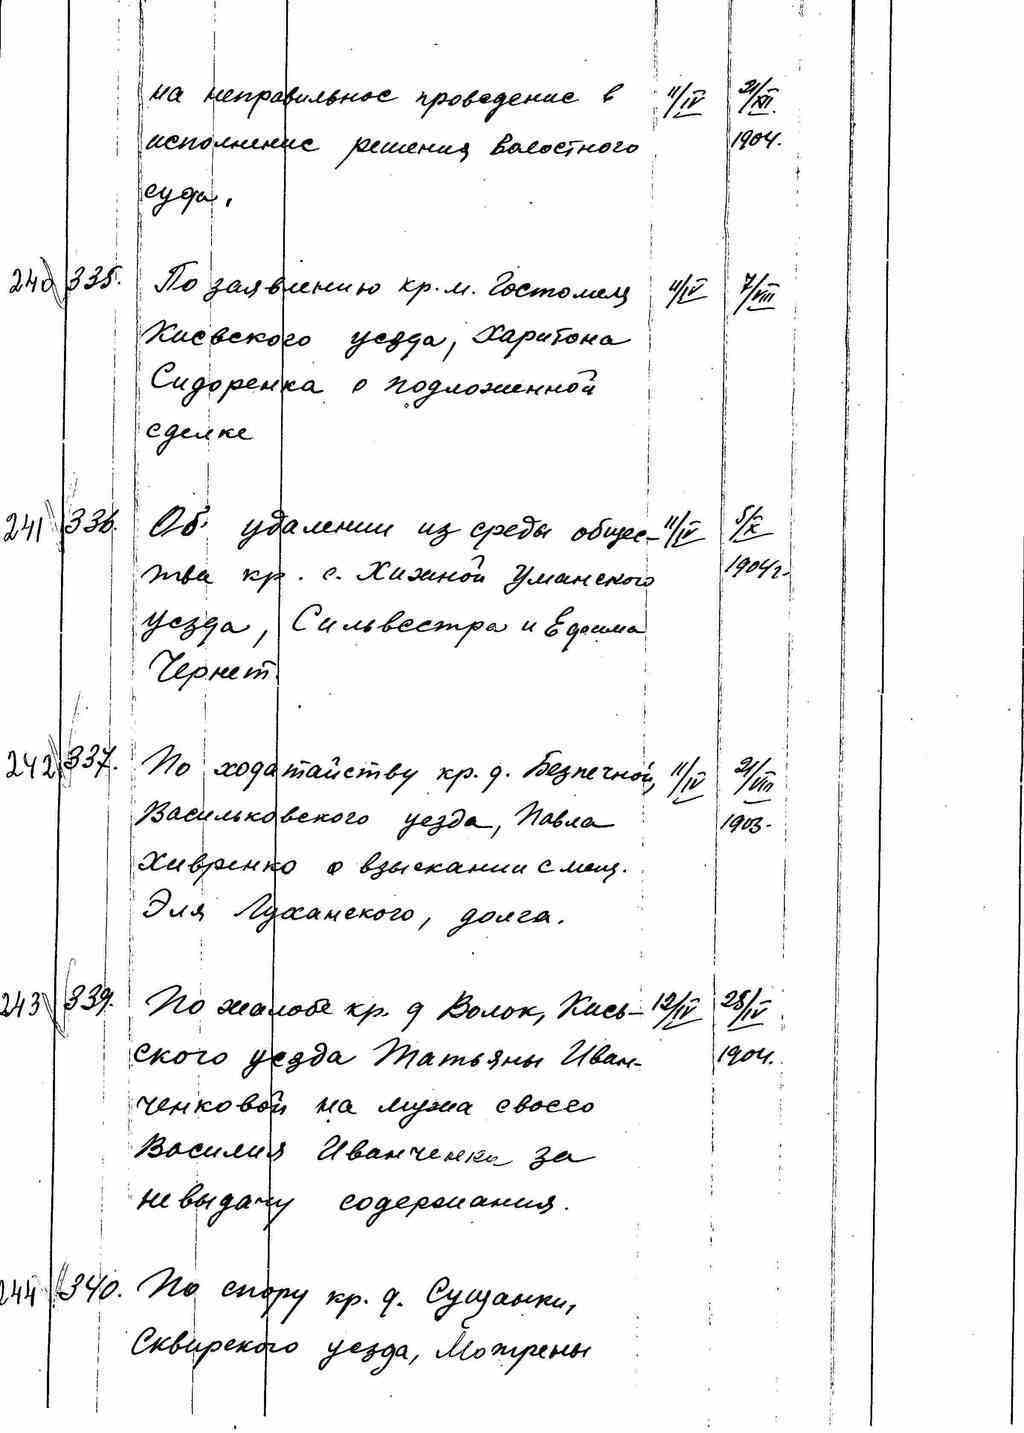 на неправильное проведение в 11/IV 21/XII
исполнение решения волостного 1904.
суда.
240 335. По заявлению кр. м. Гостомель 11/IV 7/VIII
Киевского уезда, Харитона
Сидоренка о подложенной
сделке
241 336. Об удалении из среды общес- 11/IV 5/X
тва кр. с. Хижной Уманского 1904 г.
уезда, Сильвестра и Ефима
Чернет.
242 337. По ходатайству кр. д. Безпечной, 11/IV 21/VIII
Васильковского уезда, Павла 1903.
Хивренко о взыскании с мещ.
Эля Луханского, долга.
243 339. По жалобе кр. д Волок, Киев- 12/IV 28/IV
ского уезда Татьяны Иван- 1904.
ченковой на мужа своего
Василия Иванченка за
невыдачу содержания.
244 340. По спору кр. д. Сущанки,
Сквирского уезда, Мотрены